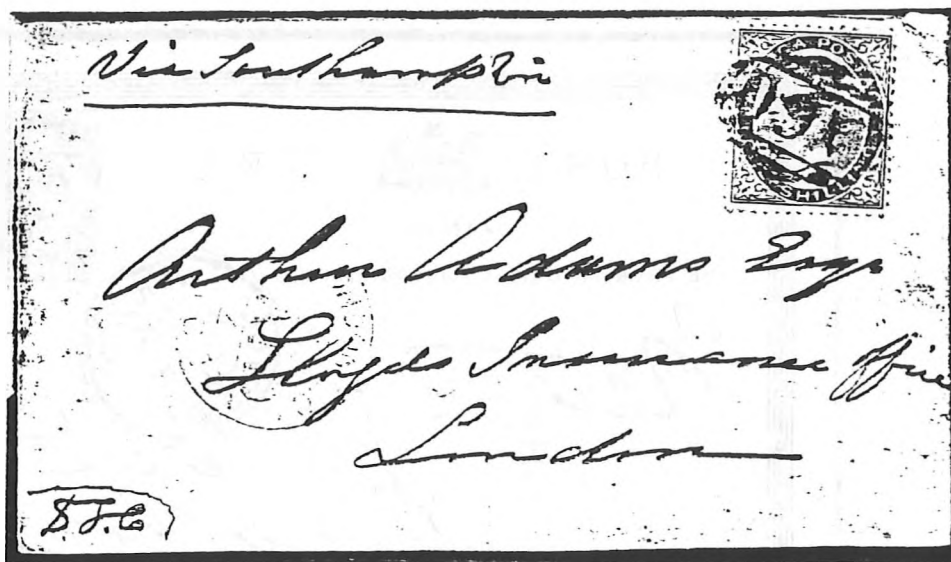 Via Southampton
SHILLING
Arthur Adams Esqr
Lloyds Insurance Office
London